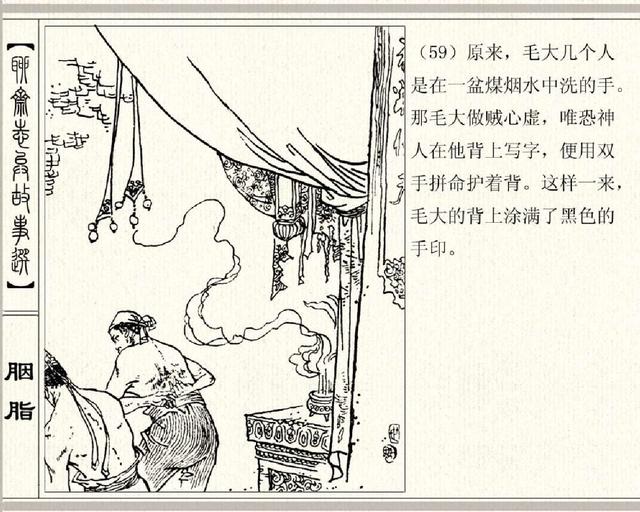 【聊斋志异故事选】
胭脂
（59）原来，毛大几个人
是在一盆煤烟水中洗的手。
那毛大做贼心虚，唯恐神
人在他背上写字，便用双
手拼命护着背。这样一来，
毛大的背上涂满了黑色的
手印。